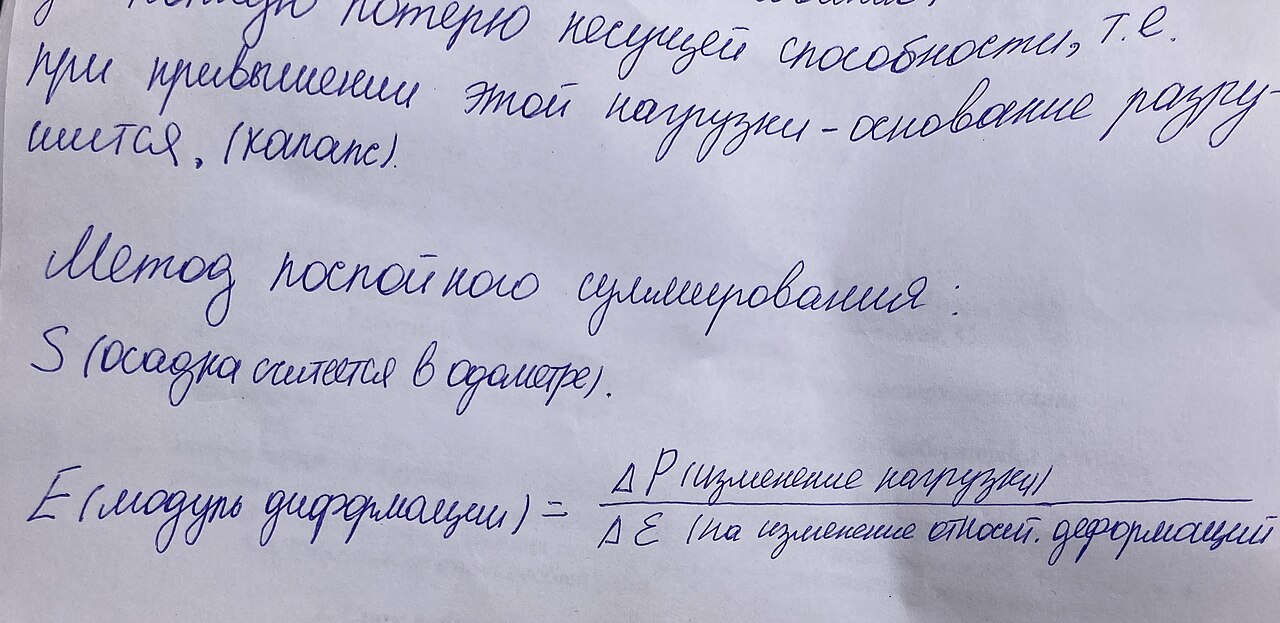 потерю несущей способности, т.е.
при привышении этой нагрузки - основание разру-
шится, (калапс).
Метод послойного суммирования:
S (осадка считется в одометре).
E (модуль диформации) = ΔP (изменение нагрузки)
Δε (на изменение относит. деформаций